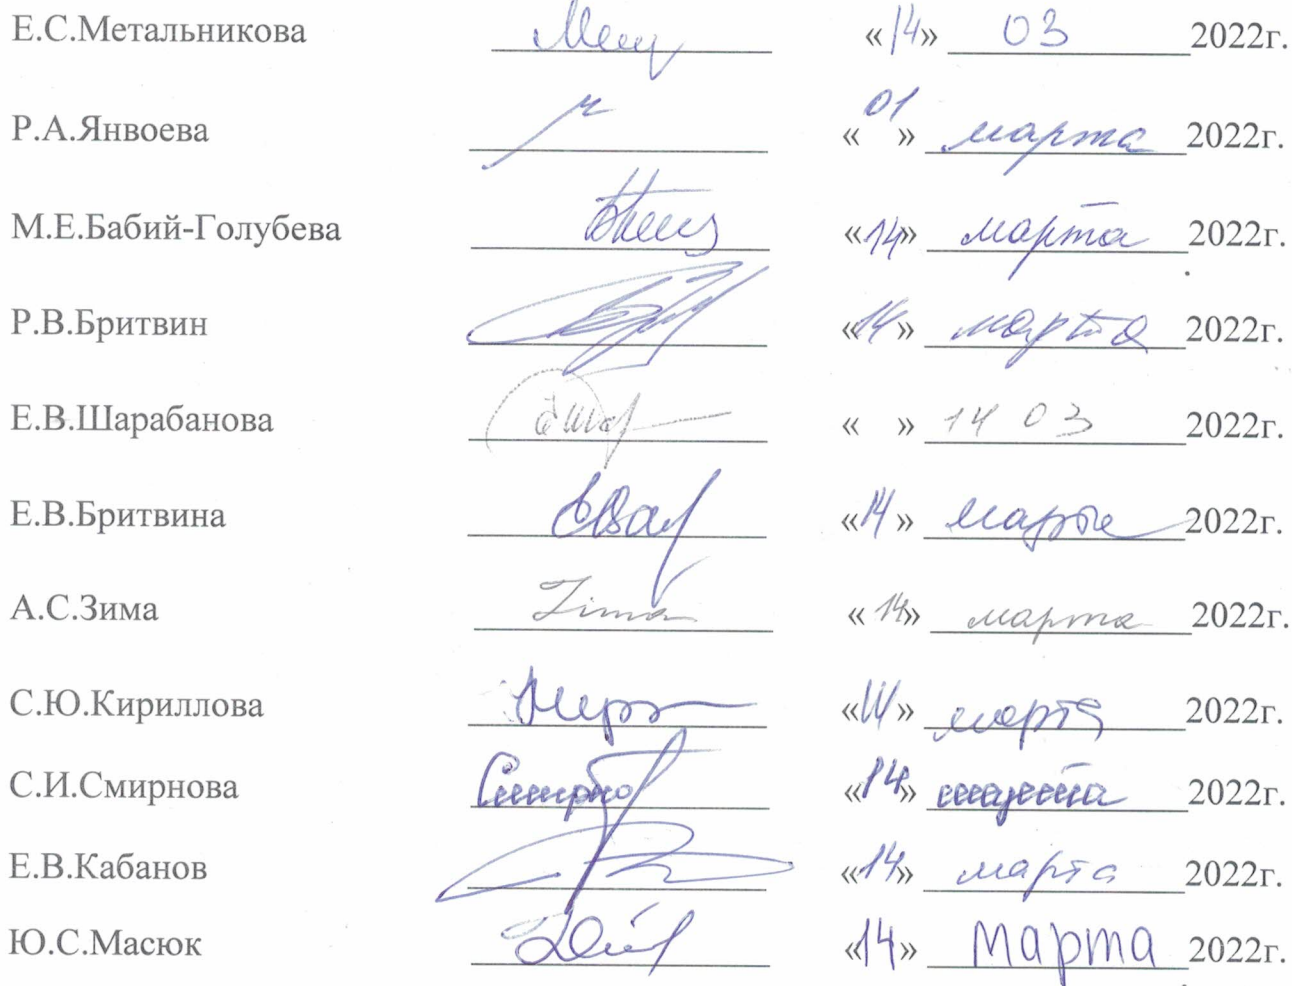 Е.С.Метальникова «14» 03 2022г.
Р.А.Янвоева «01» марта 2022г.
М.Е.Бабий-Голубева «14» марта 2022г.
Р.В.Бритвин «14» марта 2022г.
Е.В.Шарабанова « » 14 03 2022г.
Е.В.Бритвина «14» марта 2022г.
А.С.Зима Zima «14» марта 2022г.
С.Ю.Кириллова «14» марта 2022г.
С.И.Смирнова «14» марта 2022г.
Е.В.Кабанов «14» марта 2022г.
Ю.С.Масюк «14» марта 2022г.